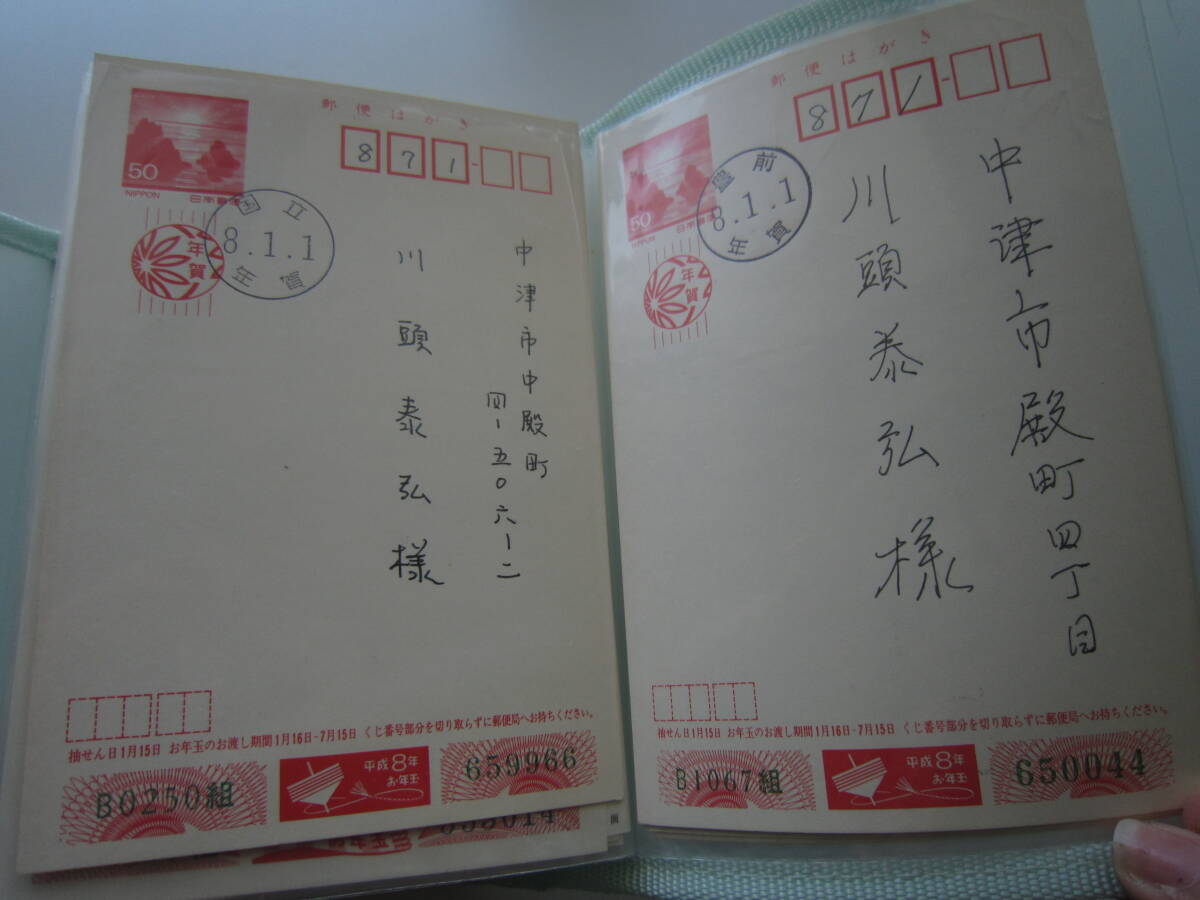 郵便はがき
871-
50
NIPPON
日本郵便
年賀
国立
8.1.1
年賀
中津市中殿町
四ー五〇六ー二
川頭泰弘様
抽せん日1月15日 お年玉のお渡し期間1月16日-7月15日 くじ番号部分を切り取らずに郵便局へお持ちください。
B0250組
平成8年
お年玉
659966
郵便はがき
871-
50
NIPPON
日本郵便
年賀
豊前
8.1.1
年賀
中津市殿町四丁目
川頭泰弘様
抽せん日1月15日 お年玉のお渡し期間1月16日-7月15日 くじ番号部分を切り取らずに郵便局へお持ちください。
B1067組
平成8年
お年玉
650044